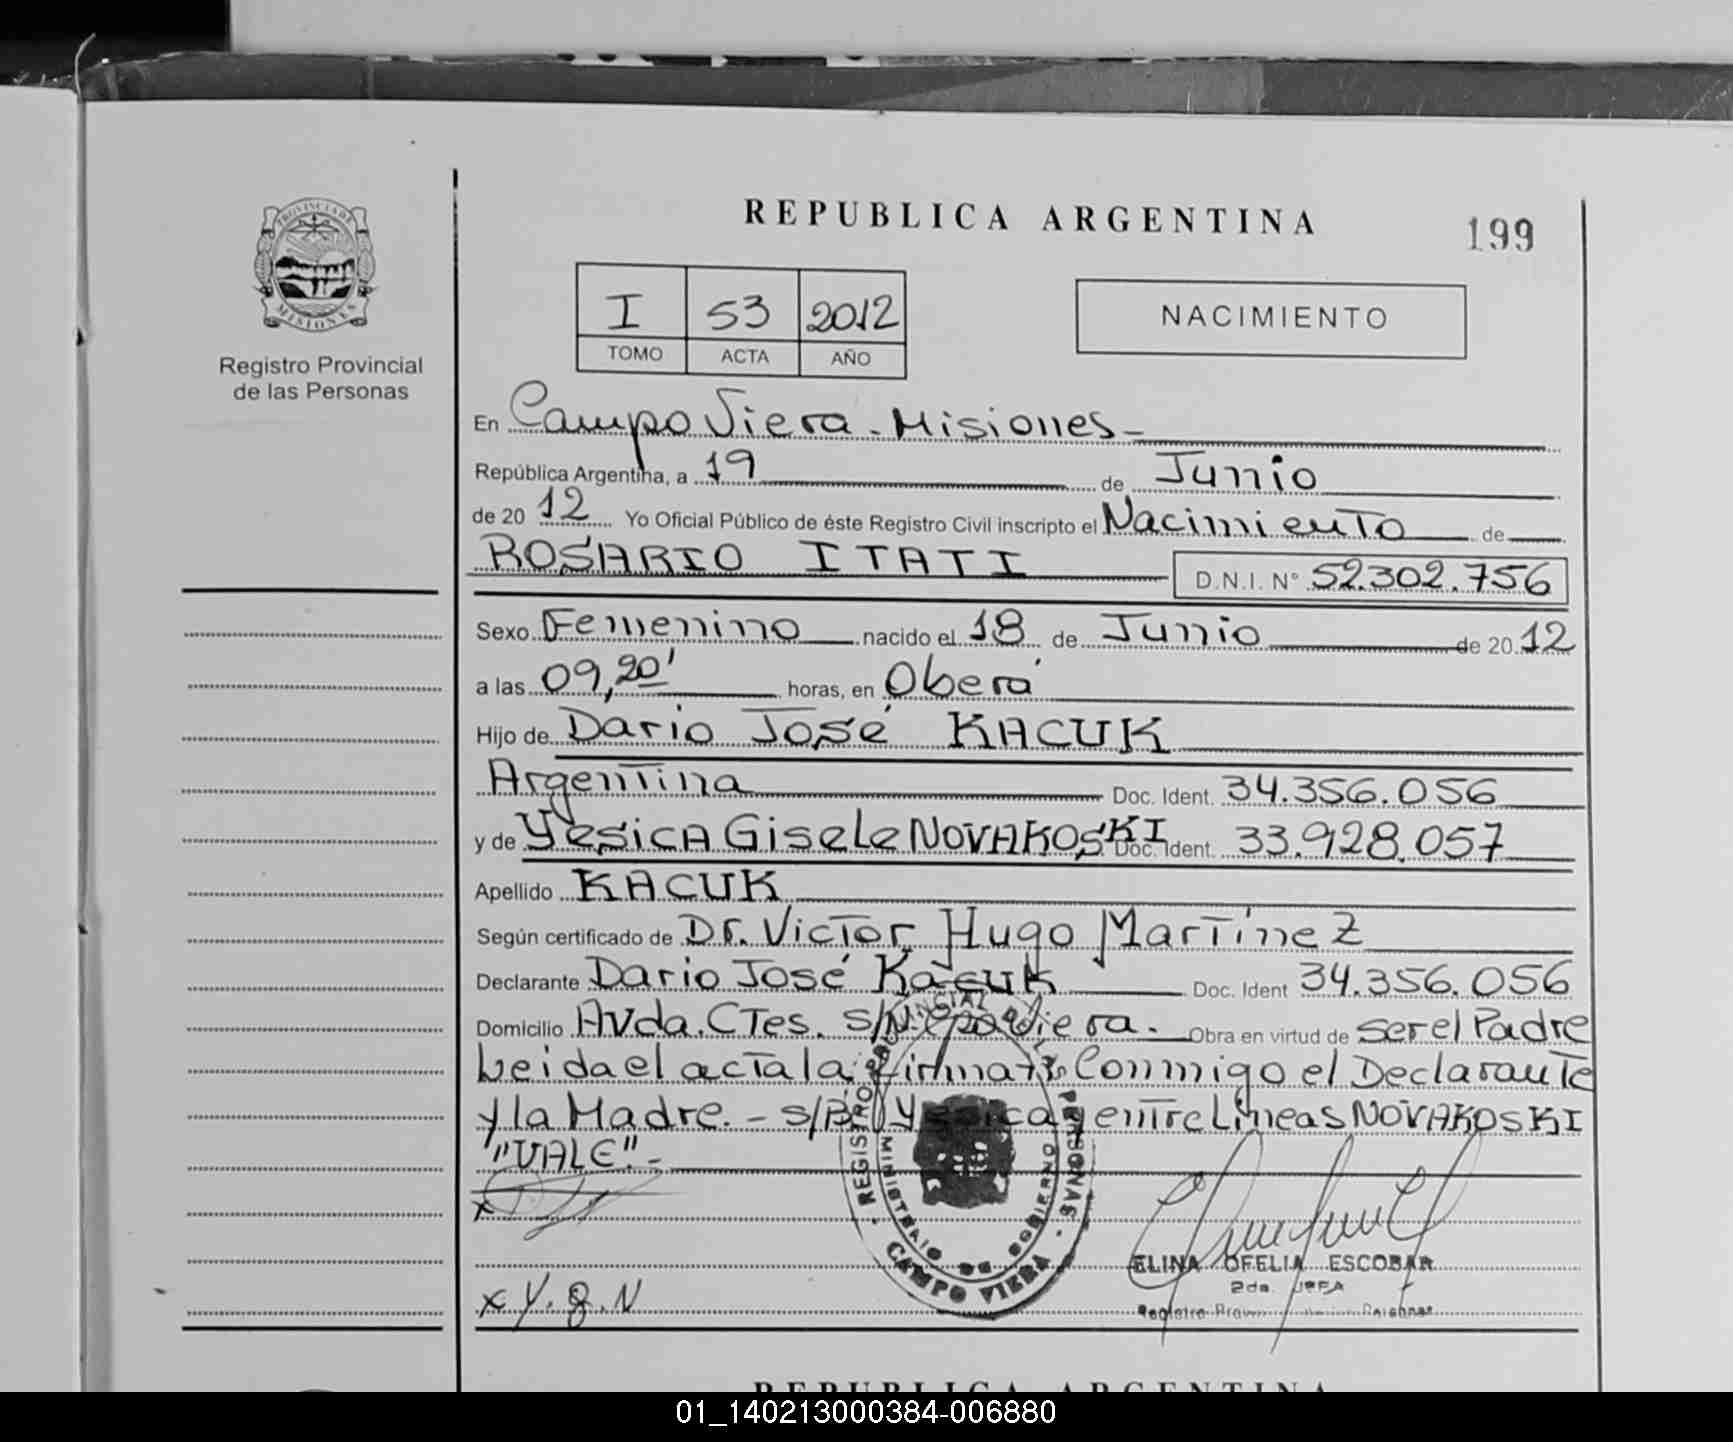 REPUBLICA ARGENTINA
199
PROVINCIA DE
MISIONES
Registro Provincial
de las Personas
I 53 2012
TOMO ACTA AÑO
NACIMIENTO
En Campo Viera - Misiones -
República Argentina, a 19 de Junio
de 2012 Yo Oficial Público de éste Registro Civil inscripto el Nacimiento de
ROSARIO ITATI D.N.I. N° 52.302.756
Sexo Femenino nacido el 18 de Junio de 2012
a las 09,20' horas, en Oberá
Hijo de Dario José KACUK
Argentina Doc. Ident. 34.356.056
y de Yesica Gisele NOVAKOSKI Doc. Ident. 33.928.057
Apellido KACUK
Según certificado de Dr. Victor Hugo Martínez
Declarante Dario José Kacuk Doc. Ident 34.356.056
Domicilio Avda. Ctes. s/N. Cpo Viera. Obra en virtud de ser el Padre
Leida el acta la firman Conmigo el Declarante
y la Madre. - s/B Yesica y entre Lineas NOVAKOSKI
"VALE". -
REGISTRO PROVINCIAL DE LAS PERSONAS
MINISTERIO DE GOBIERNO
CAMPO VIERA
x
x Y. G. N
ELINA OFELIA ESCOBAR
2da. JEFA
REPUBLICA ARGENTINA
01_140213000384-006880